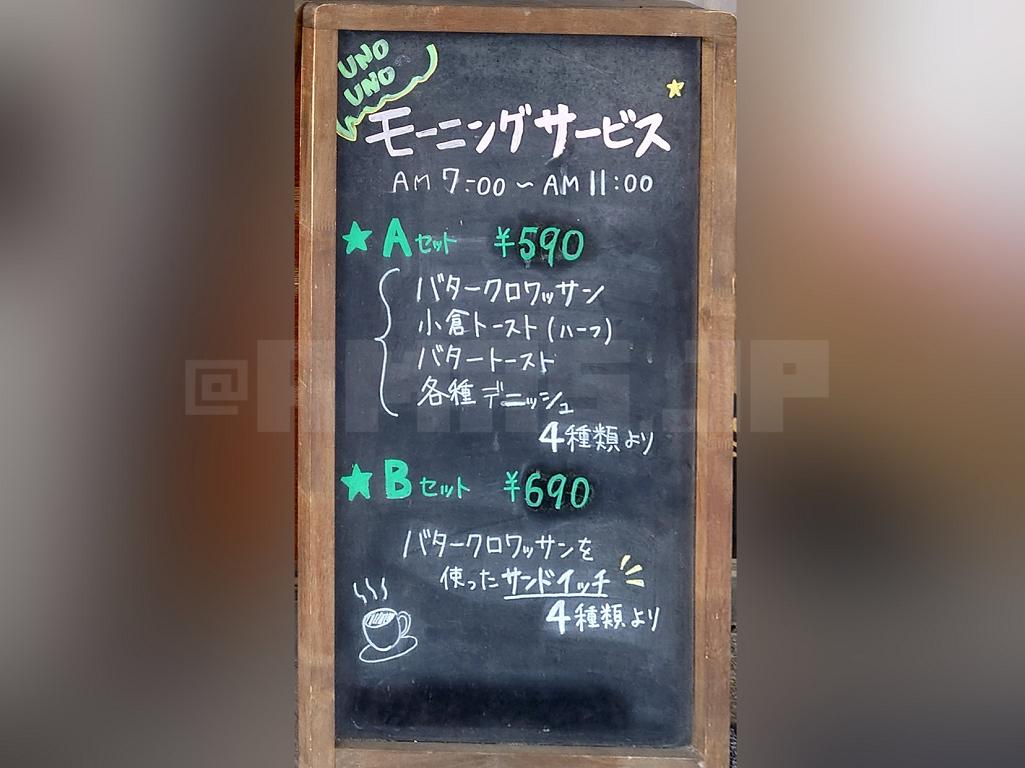 UNO
UNO
モーニングサービス
AM 7:00 ~ AM 11:00
★ Aセット ¥590
バタークロワッサン
小倉トースト(ハーフ)
バタートースト
各種デニッシュ
4種類より
★ Bセット ¥690
バタークロワッサンを
使ったサンドイッチ
4種類より